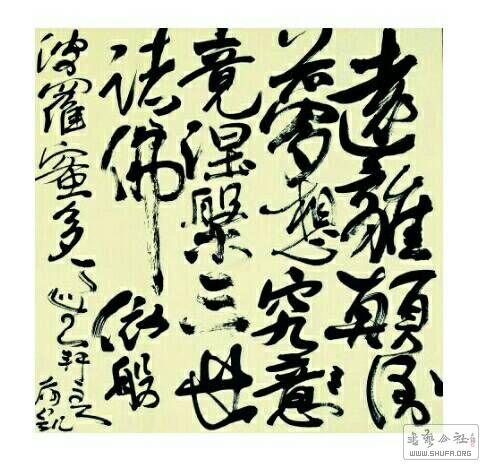 遠離顛倒
夢想究意
竟涅槃三世
諸佛依般
波羅蜜多
书艺公社
WWW.SHUFA.ORG